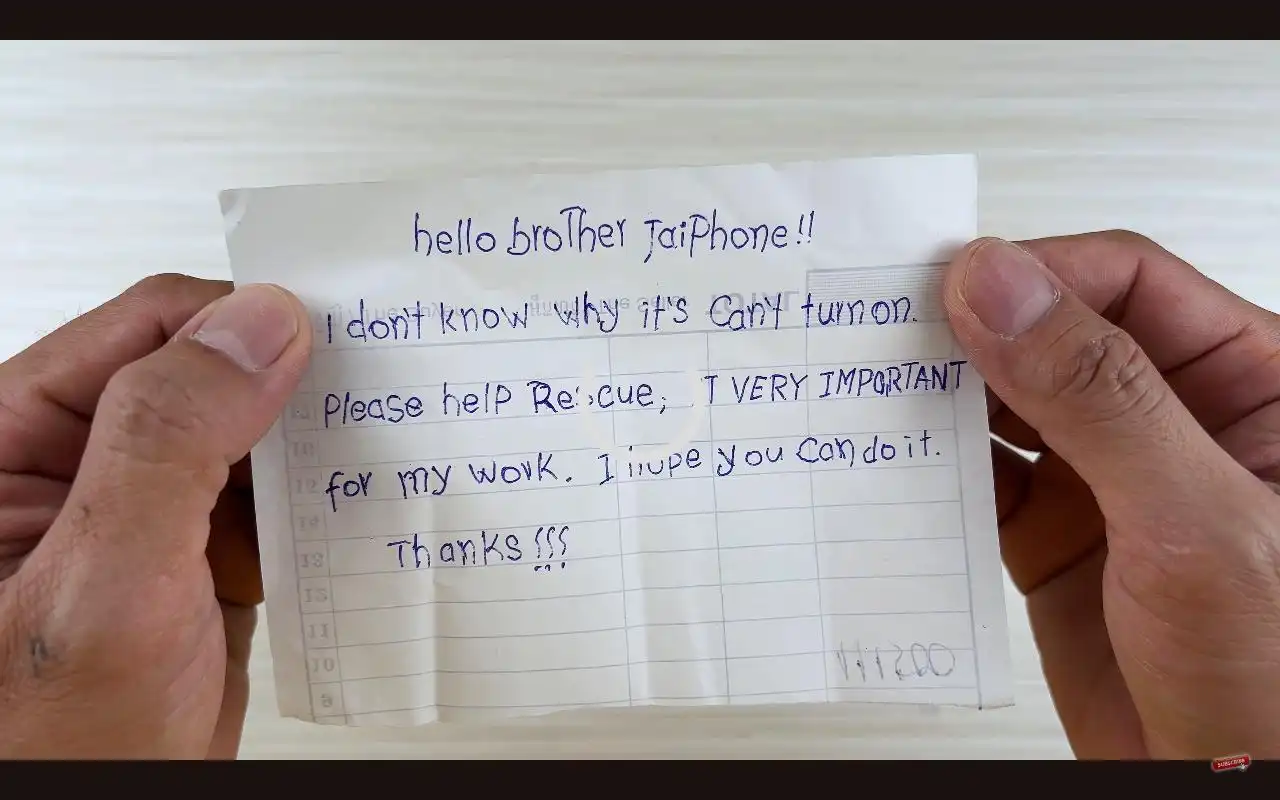 hello broTher JaiPhone!!
I don't know why it's Can't turn on.
Please help Rescue, I VERY IMPORTANT
for my work. I hope you can do it.
Thanks !!!
17
16
15
14
13
12
11
10
9
SUBSCRIBE